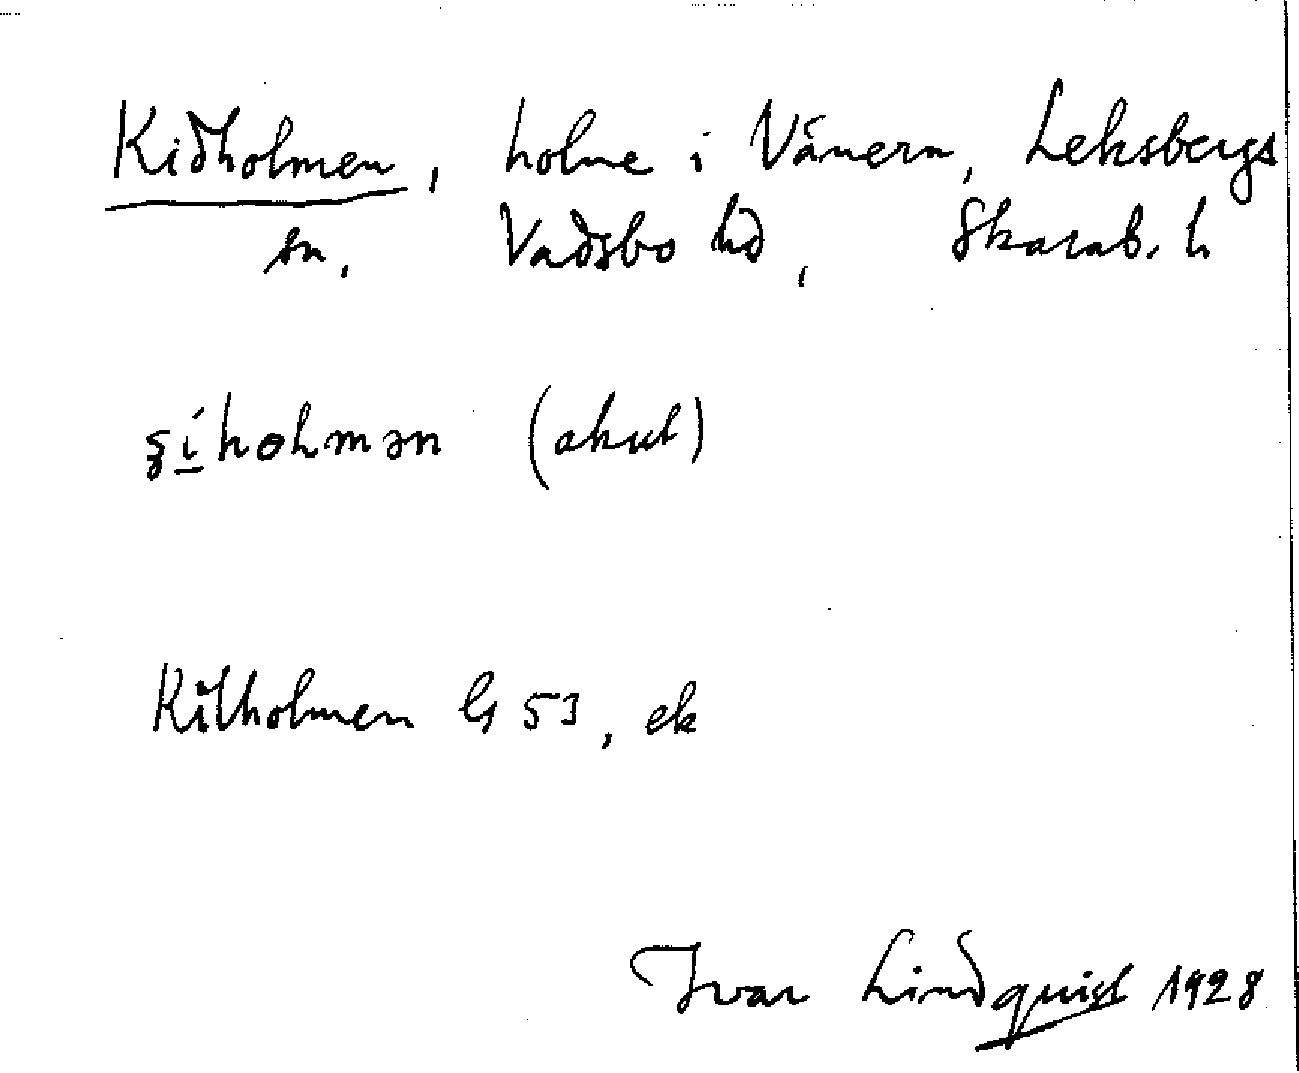 Kidholmen, holme i Vänern, Leksbergs
sn, Vadsbo hd, Skarab. l.
(akut)
Kilholmen G 53, ek
Ivar Lindquist 1928